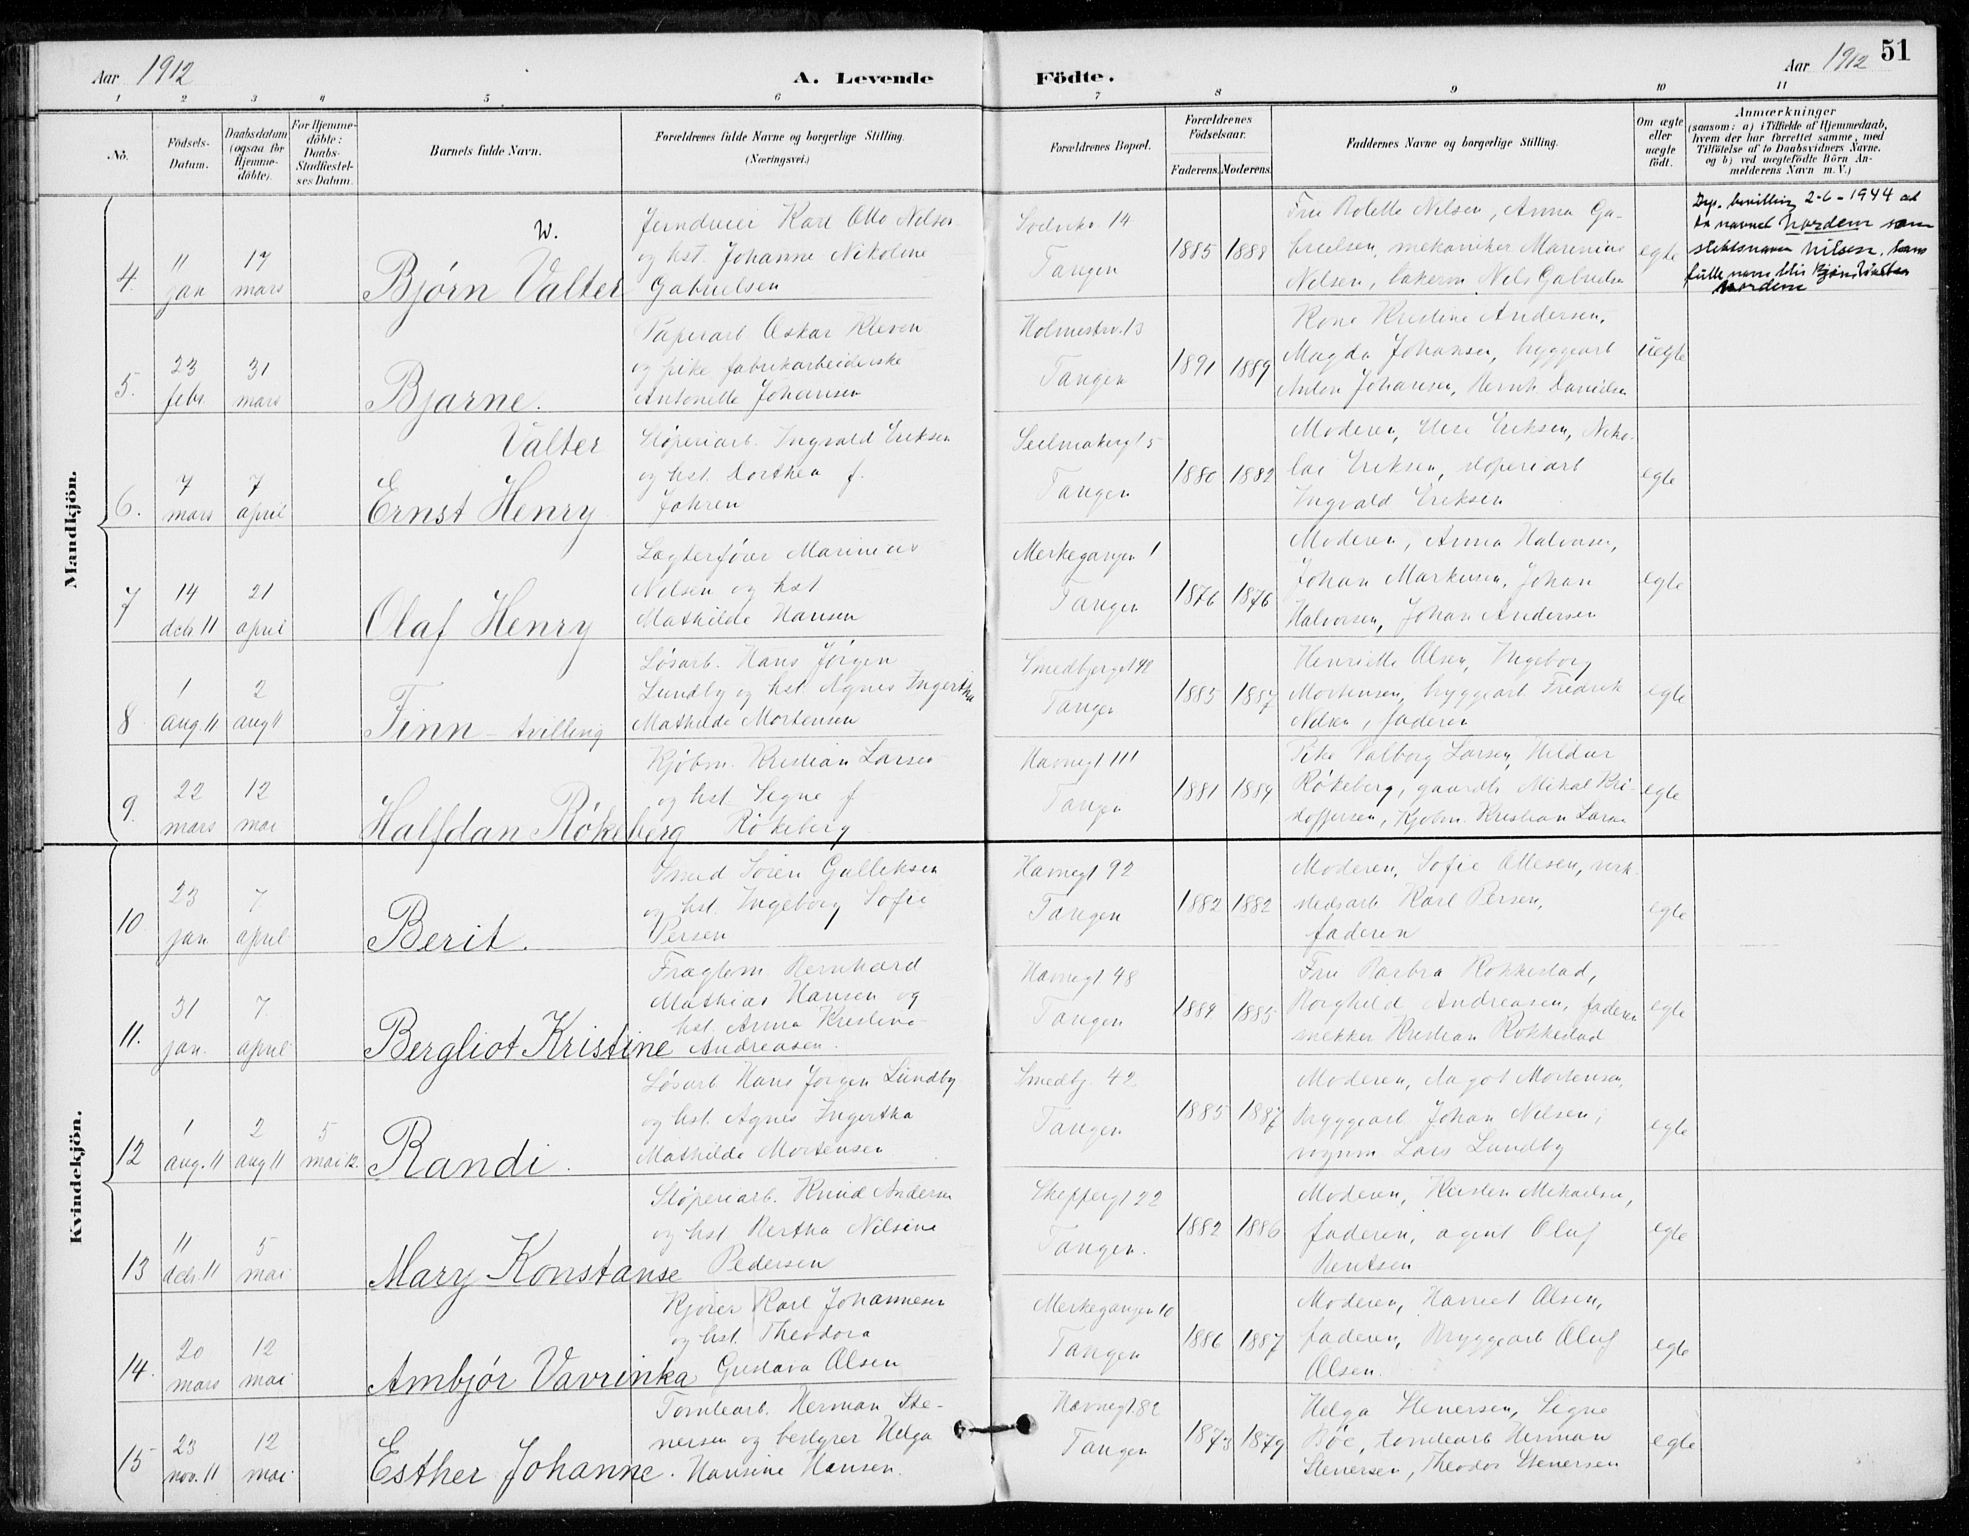 Aar 1912
A. Levende
Födte.
Aar 1912
51
1 2 3 4 5 6 7 8 9 10 11
No.
Födsels-Datum.
Daabsdatum (ogsaa for Hjemme-döbte).
For Hjemme-döbte: Daabs-Stadfæstel-ses Datum.
Barnets fulde Navn.
Forældrenes fulde Navne og borgerlige Stilling. (Næringsvei.)
Forældrenes Bopæl.
Forældrenes Födselsaar.
Faderens. Moderens.
Faddernes Navne og borgerlige Stilling.
Om ægte eller uægte födt.
Anmærkninger
(saasom: a) i Tilfælde af Hjemmedaab, hvem der har forrettet samme, med Tilföielse af to Daabsvidners Navne, og b) ved uægtefödte Börn Anmelderens Navn m. V.)
Mandkjön.
4. 11 jan 17 mars W. Bjørn Valter
Jerndreier Karl Otto Nilsen
og hst. Johanne Nikoline
Gabrielsen
14
Tangen
1885 1888
Fru Bolette Nilsen, Anna Ga-
brielsen, mekaniker Marinius
Nilsen, bakerm Nils Gabrielsen
egte
Dep. bevilling 2-6-1944 at
ta navnet Nordem som
slektsnavn Nilsen, hans
fulle navn blir Bjørn
Nordem
5. 23 febr 31 mars Bjarne.
Papirarb Oskar Kleven
og pike fabrikarbeiderske
Antonette Johansen
Holmestr. 13
Tangen
1891 1889
Kone Kristine Andersen,
Magda Johansen, bryggearb
Anton Johansen, Bernh. Davidsen
uegte
6. 7 mars 7 april Valter
Ernst Henry
Støperiarb. Ingvald Eriksen
og hst. Dorthea f.
Johren
Seilmakergt 5
Tangen
1880 1882
Moderen, Else Eriksen, Niko-
lai Eriksen, støperiarb
Ingvald Eriksen
egte
7 14 dcbr 11 21 april Olaf Henry
Lægterfører Marinius
Nilsen og hst
Mathilde Hansen
Merkegangen 1
Tangen
1876 1876
Moderen, Anna Halvorsen,
Johan Markusen, Johan
Halvorsen, Johan Andersen
egte
8 1 aug. 11 2 aug 11 Finn - tvilling
Løsarb. Hans Jørgen
Lundby og hst. Agnes Ingertha
Mathilde Mortensen
Smedbjergt 42
Tangen
1885 1887
Henriette Olsen, Ingeborg
Mortensen, bryggearb Fredrik
Nilsen, faderen
egte
9. 22 mars 12 mai Halfdan Rökeberg
Kjøbm. Kristian Larsen
og hst. Signe f
Rökeberg
Havnegt 111
Tangen
1881 1889
Pike Valborg Larsen, Hildur
Rökeberg, gaardb. Mikal Kri-
stoffersen, Kjøbm. Kristian Larsen
egte
Kvindekjön.
10 23 jan 7 april Berit.
Smed Søren Gulliksen
og hst. Ingeborg Sofie
Persen
Havnegt 92
Tangen
1882 1882
Moderen, Sofie Ottesen, verk-
stedsarb Karl Persen,
faderen
egte
11. 31 jan. 7 april Bergliot Kristine
Bernhard
Mathias Hansen og
hst. Anna Kristine
Andreasen.
Havnegt 48
Tangen
1884 1885
Fru Barbra Rokkestad,
Borghild Andreasen, faderen
snekker Kristian Rokkestad
egte
12 1 aug. 11 2 aug 11 5 mai 12. Randi.
Løsarb Hans Jørgen Lundby
og hst Agnes Ingertha
Mathilde Mortensen
Smedbj. 42
Tangen
1885 1887
Moderen, Aagot Mortensen,
Bryggearb Johan Nilsen,
vognm Lars Lundby
egte
13 11 dcbr. 11 5 mai Mary Konstanse
Støperiarb. Knud Andersen
og hst Bertha Nilsine
Pedersen
Skippergt 22
Tangen.
1882 1886
Moderen, Kirsten Mikaelsen,
faderen, agent Oluf
Berntsen
egte
14. 20 mars 12 mai Ambjør Vavrinka
Kjører Karl Johannesen
og hst. Theodora
Gustava Olsen
Merkegangen 10
Tangen
1886 1887
Moderen, Harriet Olsen,
faderen, Bryggearb Oluf
Olsen.
egte
15 23 nov. 11 12 mai Esther Johanne.
Tomtearb. Herman Ste-
nersen og bestyrer Helga
Hansine Hansen.
Havnegt. 82
Tangen
1873 1879
Helga Stenersen, Signe
Bøe, tomtearb Herman
Stenersen, Theodor Stenersen
egte